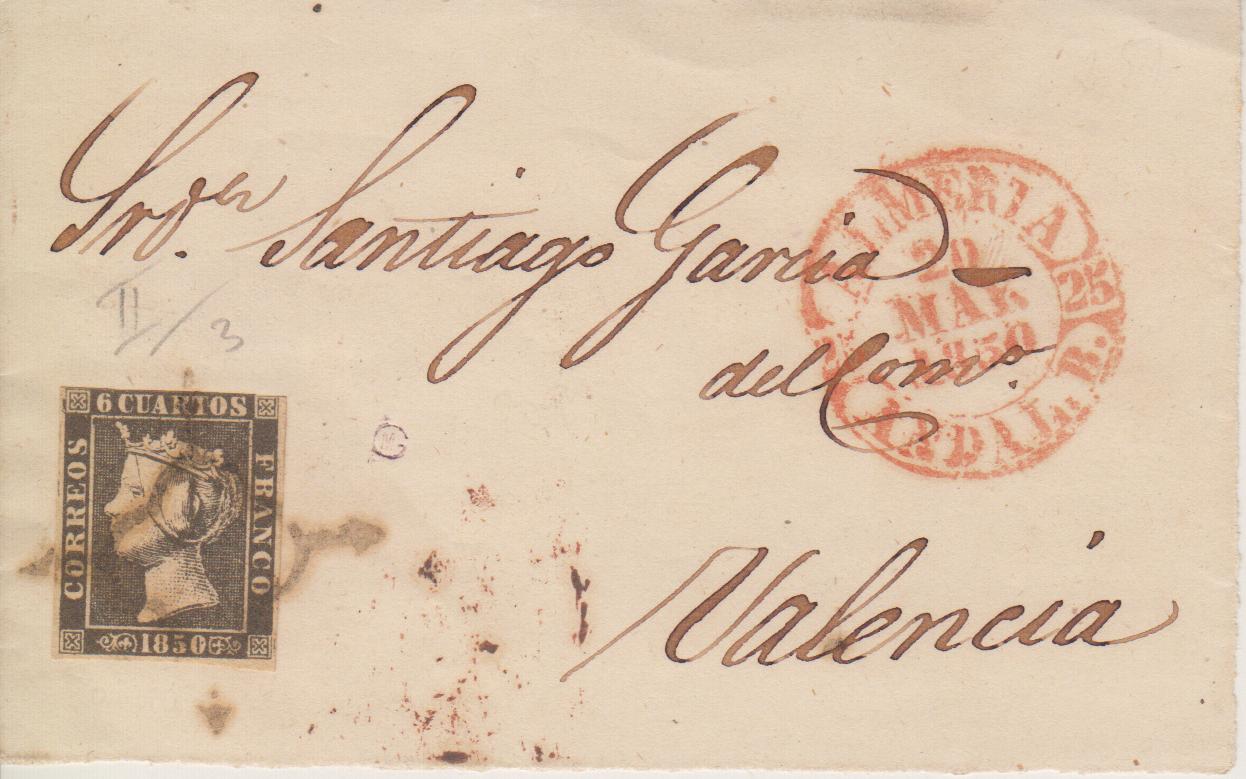 Sr Dn. Santiago Garcia
del Comº.
Valencia
II/3
6 CUARTOS
CORREOS
FRANCO
1850
ALMERIA
20
MAR
1850
25
ANDAL. B.